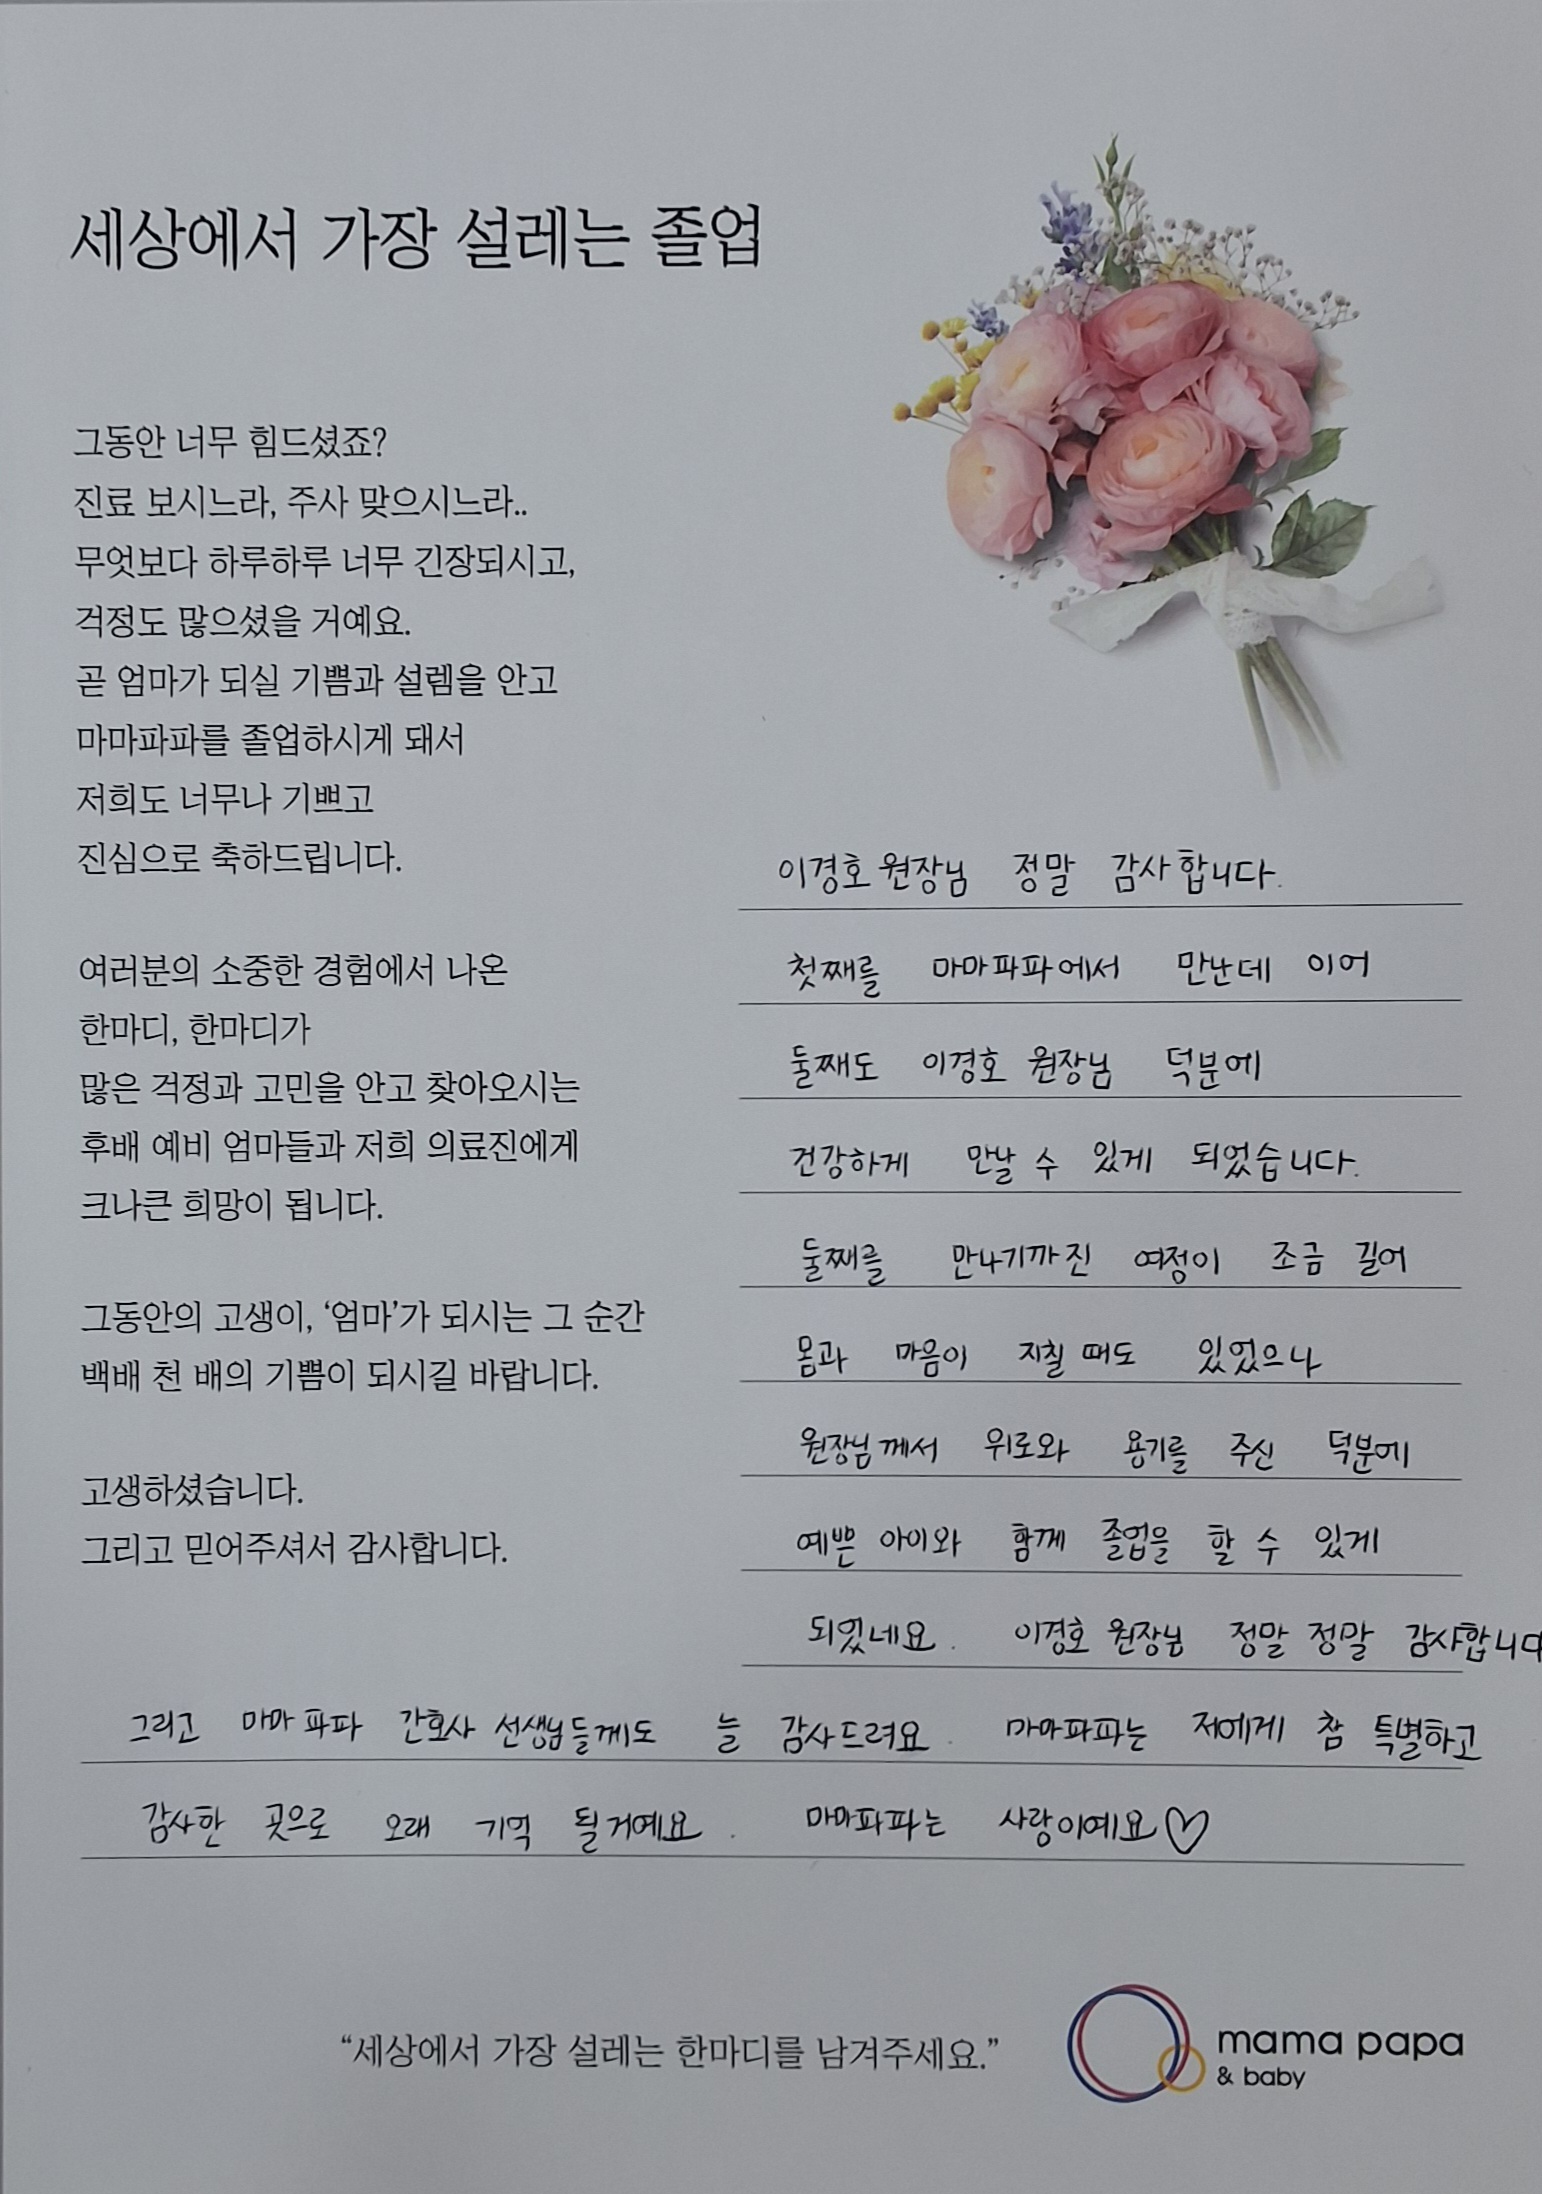 세상에서 가장 설레는 졸업
그동안 너무 힘드셨죠?
진료 보시느라, 주사 맞으시느라..
무엇보다 하루하루 너무 긴장되시고,
걱정도 많으셨을 거예요.
곧 엄마가 되실 기쁨과 설렘을 안고
마마파파를 졸업하시게 돼서
저희도 너무나 기쁘고
진심으로 축하드립니다.
여러분의 소중한 경험에서 나온
한마디, 한마디가
많은 걱정과 고민을 안고 찾아오시는
후배 예비 엄마들과 저희 의료진에게
크나큰 희망이 됩니다.
그동안의 고생이, ‘엄마’가 되시는 그 순간
백배 천 배의 기쁨이 되시길 바랍니다.
고생하셨습니다.
그리고 믿어주셔서 감사합니다.
이경호 원장님 정말 감사합니다.
첫째를 마마파파에서 만난데 이어
둘째도 이경호 원장님 덕분에
건강하게 만날 수 있게 되었습니다.
둘째를 만나기까진 여정이 조금 길어
몸과 마음이 지칠 때도 있었으나
원장님께서 위로와 용기를 주신 덕분에
예쁜 아이와 함께 졸업을 할 수 있게
되었네요. 이경호 원장님 정말 정말 감사합니다
그리고 마마파파 간호사 선생님들께도 늘 감사드려요. 마마파파는 저에게 참 특별하고
감사한 곳으로 오래 기억 될거예요. 마마파파는 사랑이예요♡
“세상에서 가장 설레는 한마디를 남겨주세요.”
mama papa
& baby